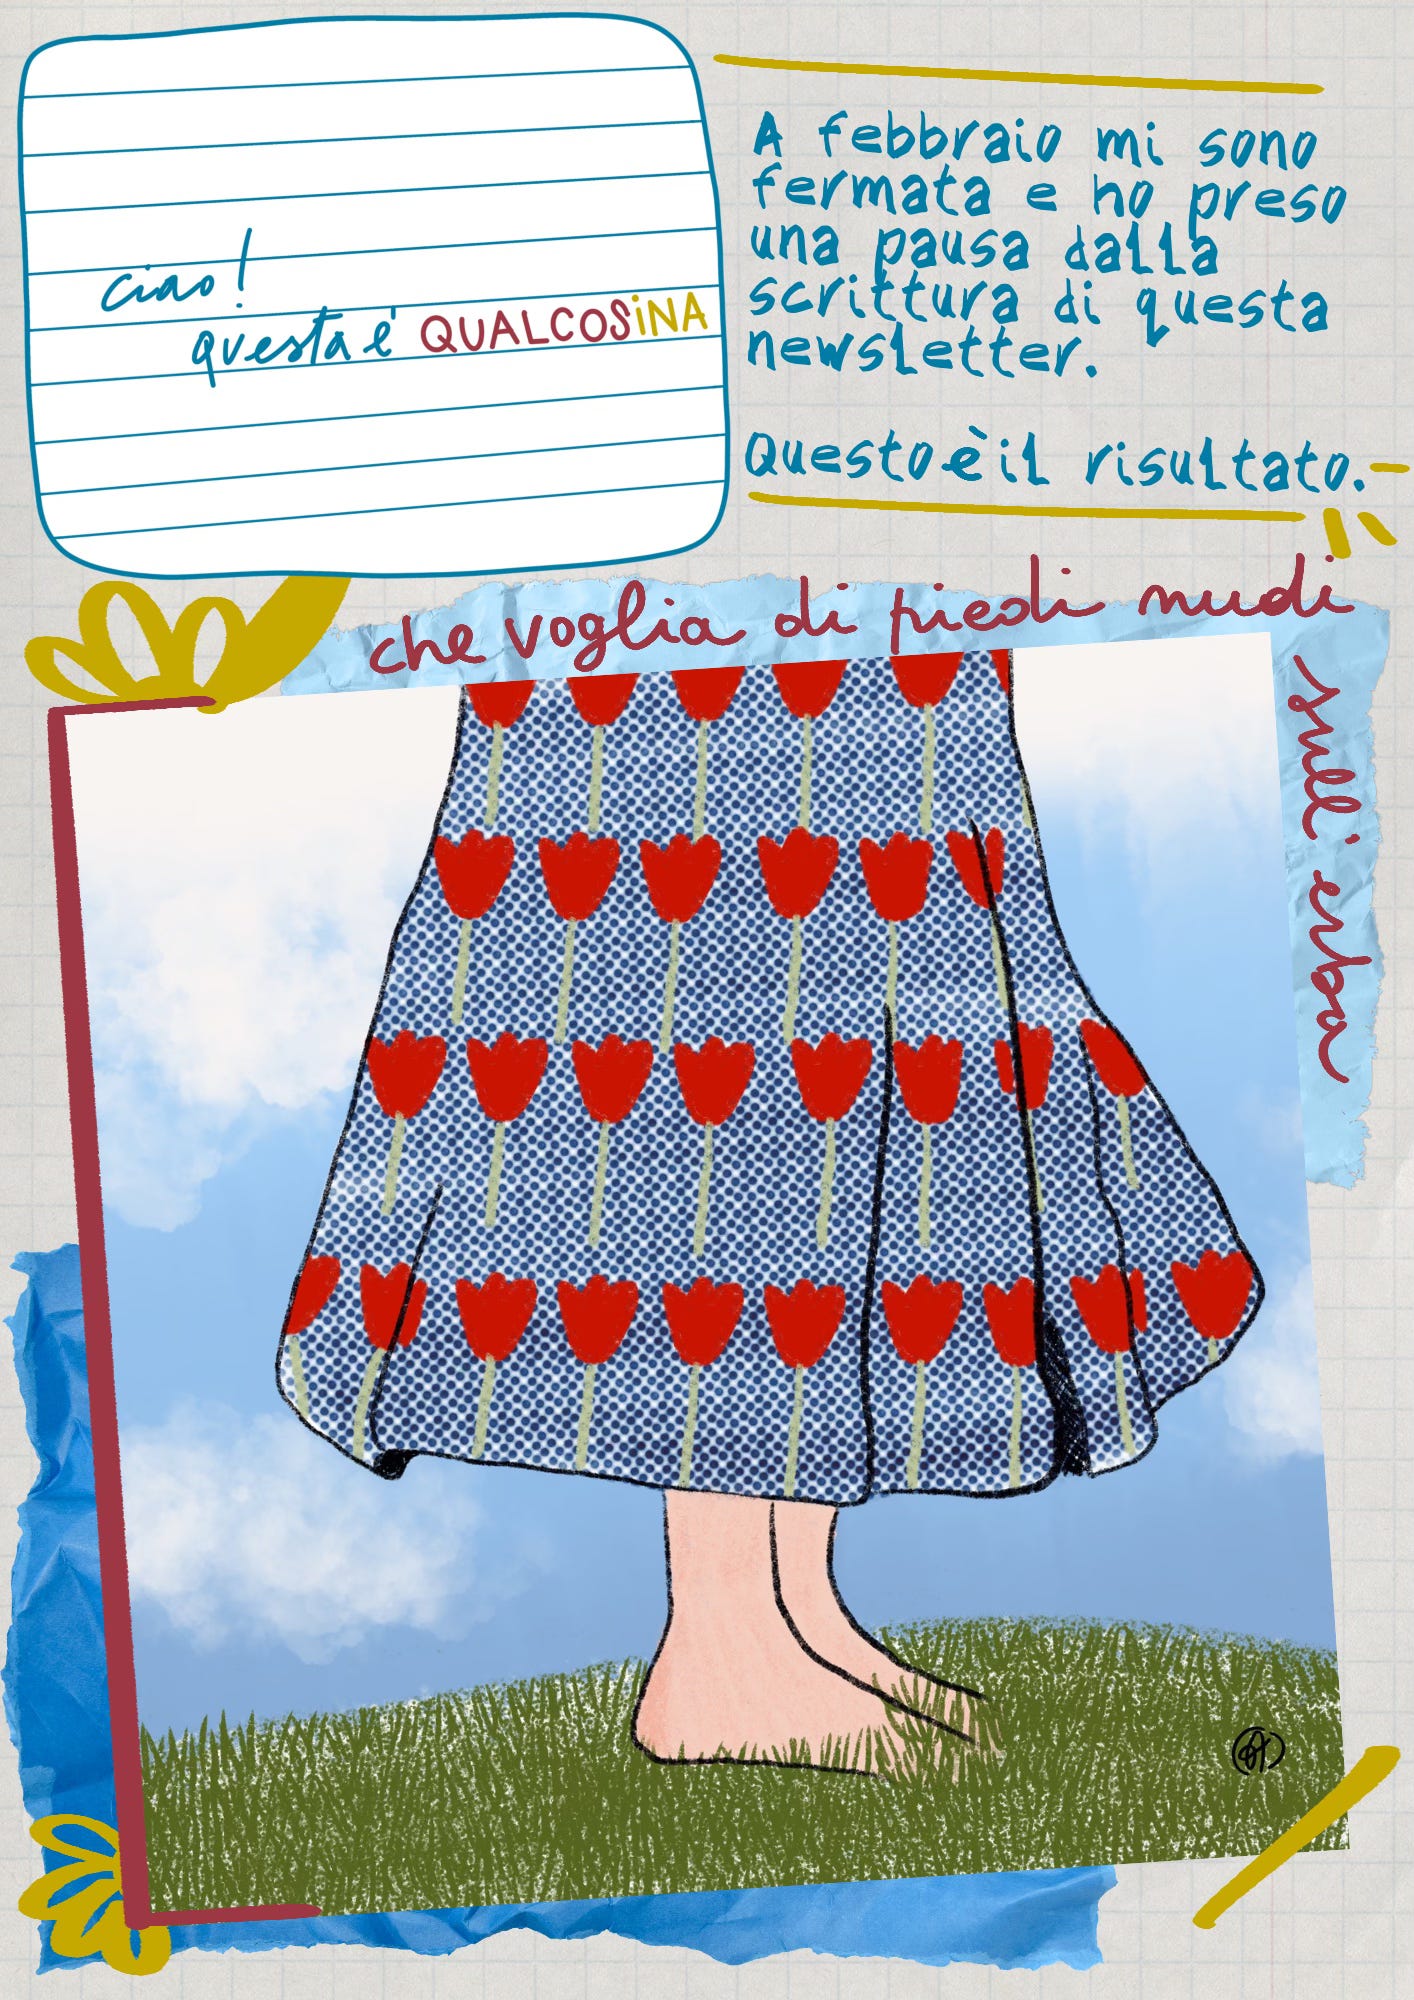 ciao!
questa è QUALCOSiNA
A febbraio mi sono
fermata e ho preso
una pausa dalla
scrittura di questa
newsletter.
Questo è il risultato.
che voglia di piedi nudi
sull'erba